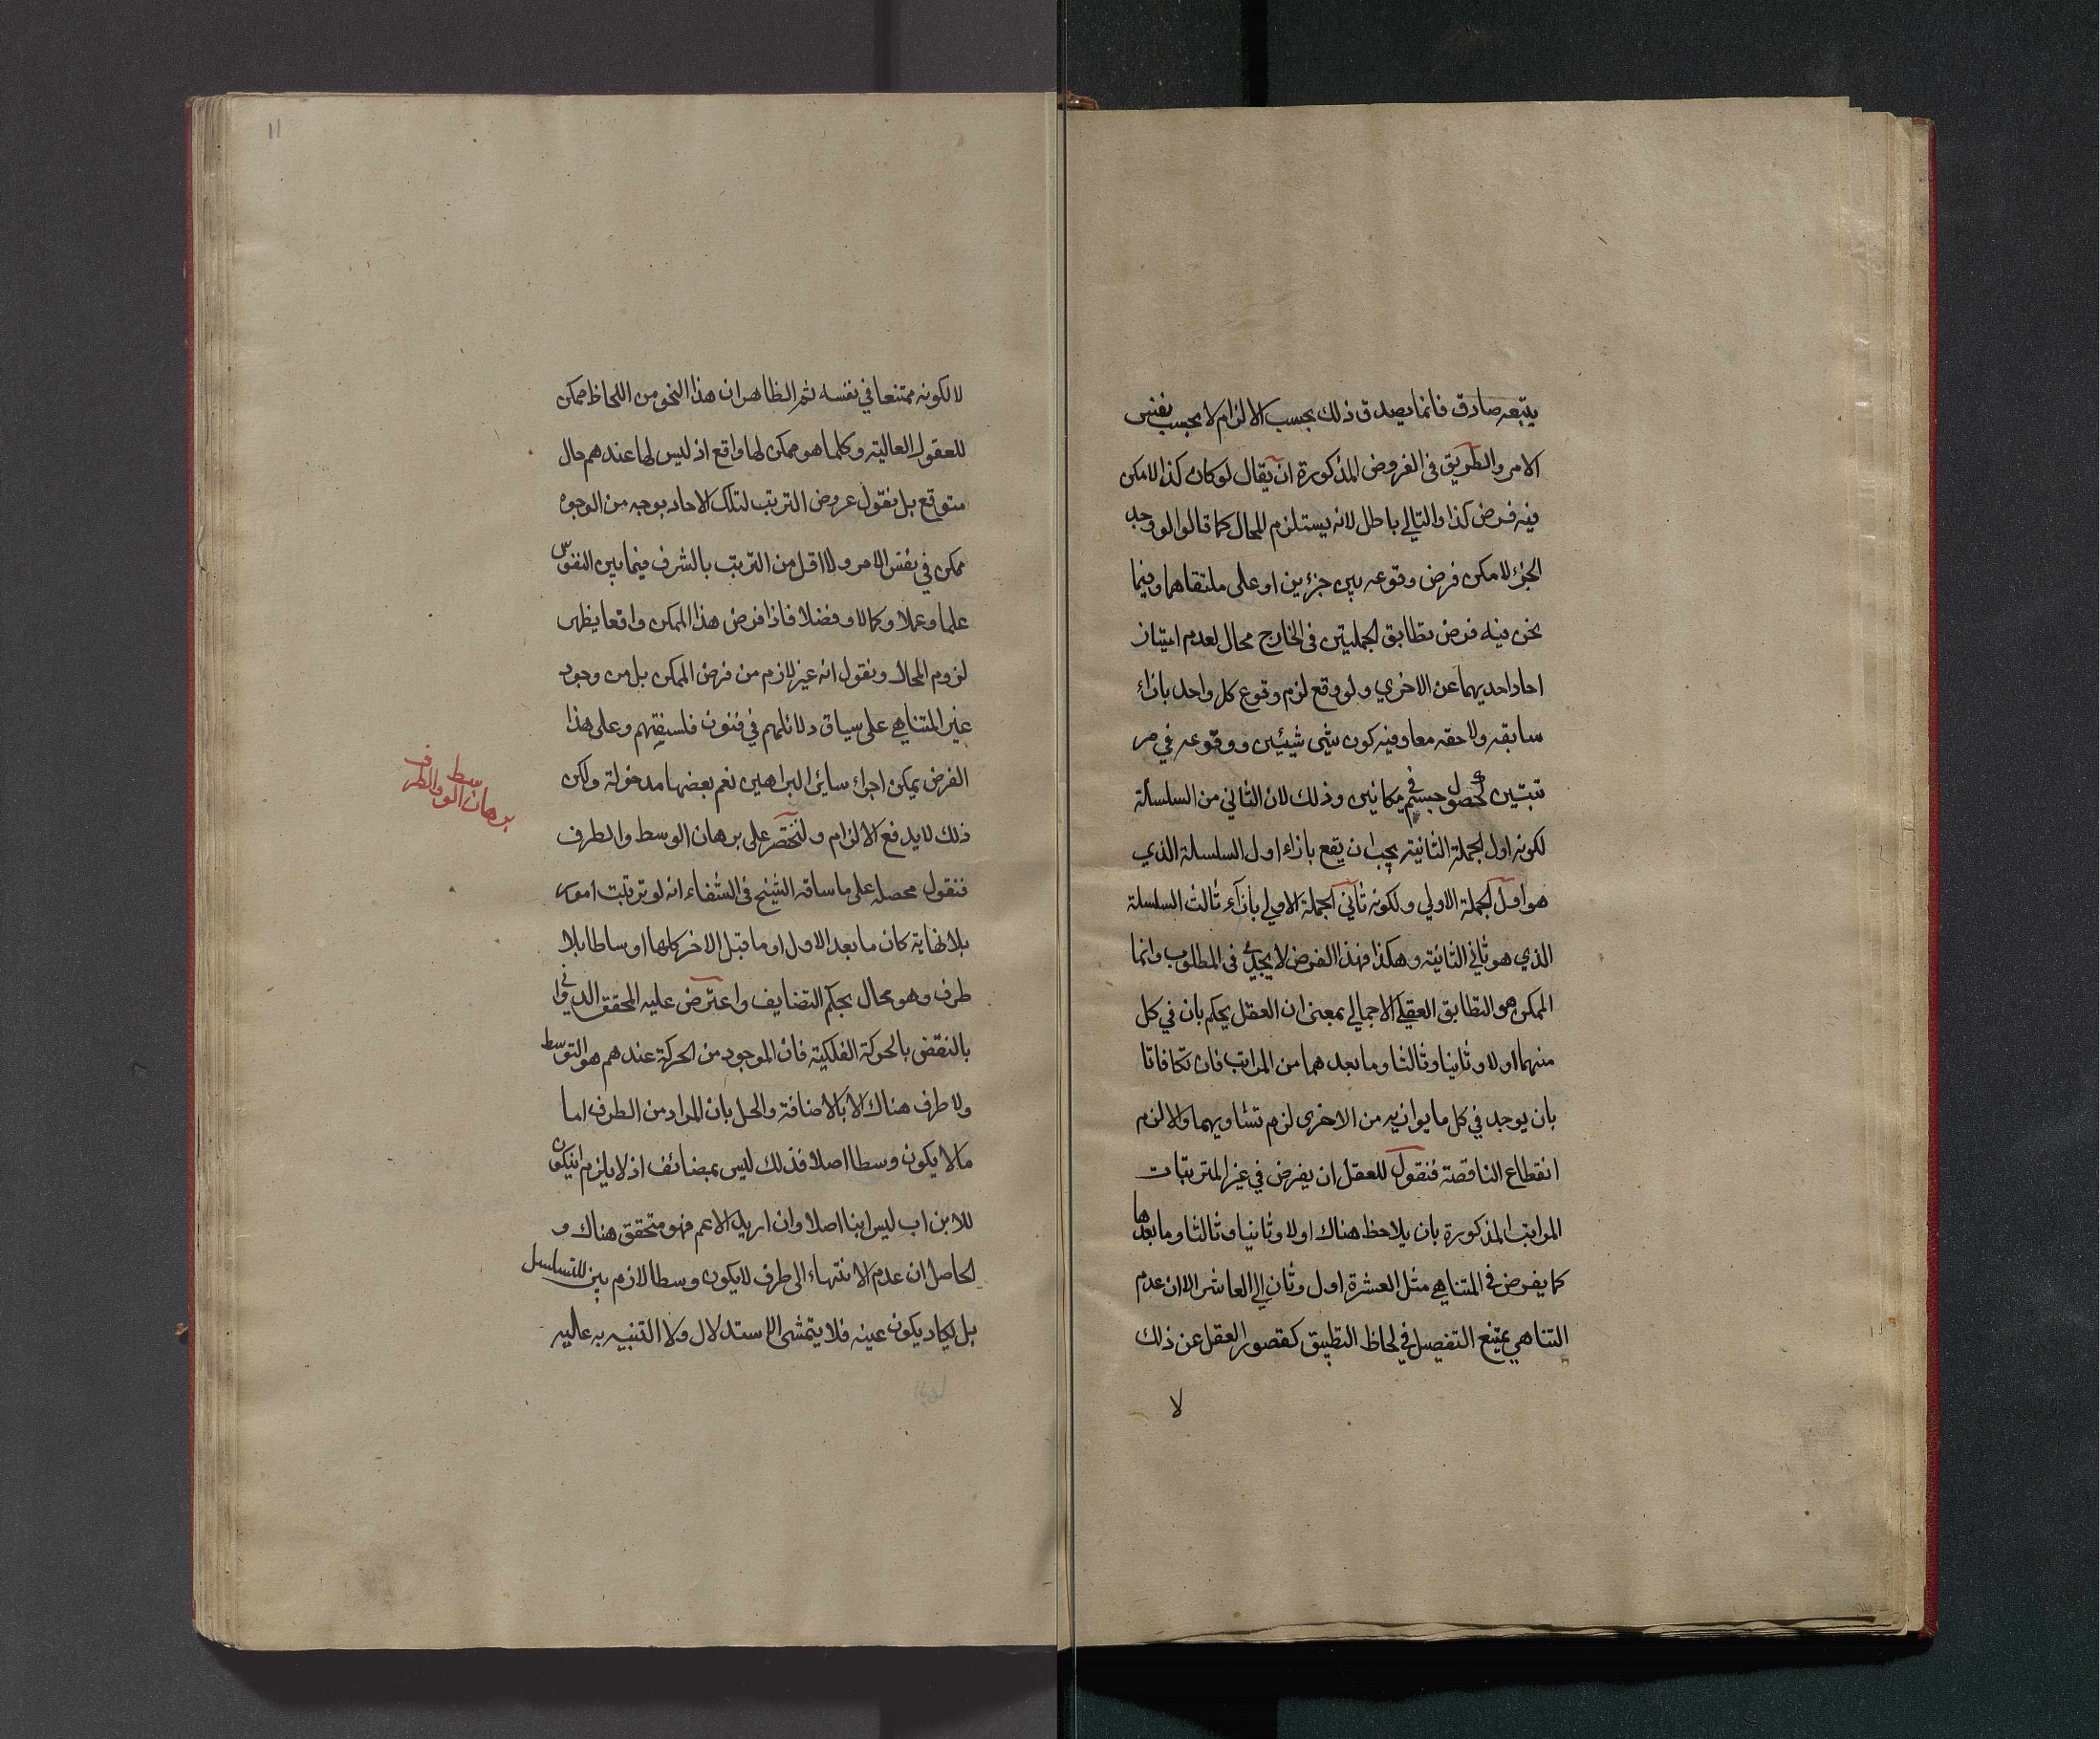 يتبعه صادق فانما يصدق ذلك بحسب الالزام لا بحسب نفس
الامر والطريق في الفروض المذكورة ان يقال لو كان كذا لامكن
فيه فرض كذا والتالي باطل لانه يستلزم المحال كما قالوا لو وجد
الجزء لامكن فرض وقوعه بين جزئين او على ملتقاهما وفيما
نحن فيه فرض تطابق الجملتين في الخارج محال لعدم امتياز
احاد احديهما عن الاخري ولو وقع لزم وقوع كل واحد بازاء
سابقه ولاحقه معا وفيه كون شيء شيئين ووقوعه في مر
تبتين كحصول جسم في مكانين وذلك لان الثاني من السلسلة
لكونه اول الجملة الثانية يجب ان يقع بازاء اول السلسلة الذي
هو اول الجملة الاولي ولكونه ثاني الجملة الاولي بازاء ثالث السلسلة
الذي هو ثاني الثانية وهكذا فهذا الفرض لا يجدي في المطلوب وانما
الممكن هو التطابق العقلي الاجمالي بمعنى ان العقل يحكم بان في كل
منهما اولا وثانيا وثالثا وما بعدهما من المراتب فان تكافاتا
بان يوجد في كل ما يوازيه من الاخرى لزم تساويهما والا لزم
انقطاع الناقصة فنقول للعقل ان يفرض في غير المترتبات
المراتب المذكورة بان يلاحظ هناك اولا وثانيا وثالثا وما بعدها
كما يفرض في المتناهي مثل العشرة اول وثان الي العاشر الا ان عدم
التناهي يمنع التفصيل في لحاظ التطبيق كقصور العقل عن ذلك
لا
١١
لا لكونه ممتنعا في نفسه ثم الظاهر ان هذا النحو من اللحاظ ممكن
للعقول العالية وكلما هو ممكن لها واقع اذ ليس لها عندهم حال
متوقع بل نقول عروض الترتب لتلك الاحاد بوجه من الوجوه
ممكن في نفس الامر ولا اقل من الترتب بالشرف فيما بين النفوس
علما وعملا وكمالا وفضلا فاذا فرض هذا الممكن واقعا يظهر
لزوم المحال ونقول انه غير لازم من فرض الممكن بل من وجود
غير المتناهي على سياق دلائلهم في فنون فلسفتهم وعلى هذا
الفرض يمكن اجراء سائر البراهين نعم بعضها مدخولة ولكن
برهان الوسط والطرف
ذلك لا يدفع الالزام ولنختصر على برهان الوسط والطرف
فنقول محصله على ما ساقه الشيخ في الشفاء انه لو ترتبت امور
بلا نهاية كان ما بعد الاول او ما قبل الاخر كلها اوساطا بلا
طرف وهو محال بحكم التضايف واعترض عليه المحقق الدواني
بالنقض بالحركة الفلكية فان الموجود من الحركة عندهم هو التوسط
ولا طرف هناك الا بالاضافة والحل بان المراد من الطرف اما
ما لا يكون وسطا اصلا فذلك ليس بمضائف اذ لا يلزم ان يكون
للابن اب ليس ابنا اصلا وان اريد الاعم فهو متحقق هناك و
الحاصل ان عدم الانتهاء الى طرف لا يكون وسطا لازم بين للتسلسل
بل يكاد يكون عينه فلا يتمشى الاستدلال ولا التنبيه به عليه